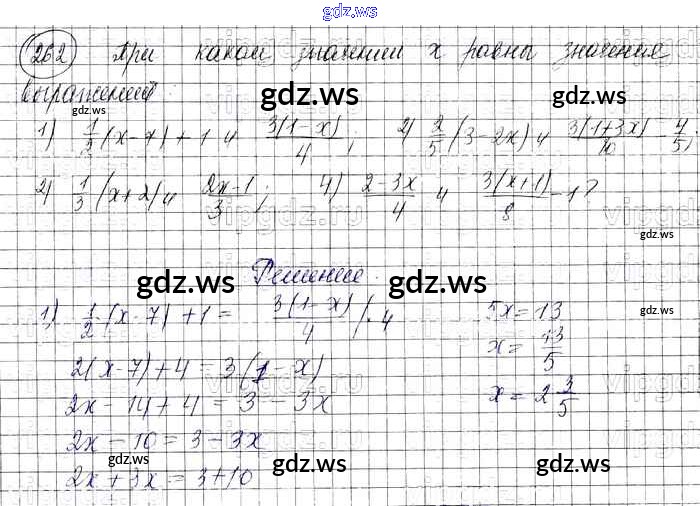 gdz.ws
262 При каком значении x равны значения
выражений
gdz.ws gdz.ws
gdz.ws
1) 1/2 (x-7) + 1 и 3(1-x)/4; 2) 2/5 (3-2x) и 3(1+3x)/10 - 4/5;
2) 1/3 (x+2) и 2x-1/3; 4) 2-3x/4 и 3(x+1)/8 - 1?
vipgdz.ws
gdz.ws
Решение.
gdz.ws gdz.ws
1) 1/2 · (x-7) + 1 = 3(1-x)/4 |·4
2(x-7) + 4 = 3(1-x)
2x - 14 + 4 = 3 - 3x
2x - 10 = 3 - 3x
2x + 3x = 3 + 10
5x = 13
gdz.ws
x = 13/5
x = 2 3/5
gdz.ws gdz.ws gdz.ws